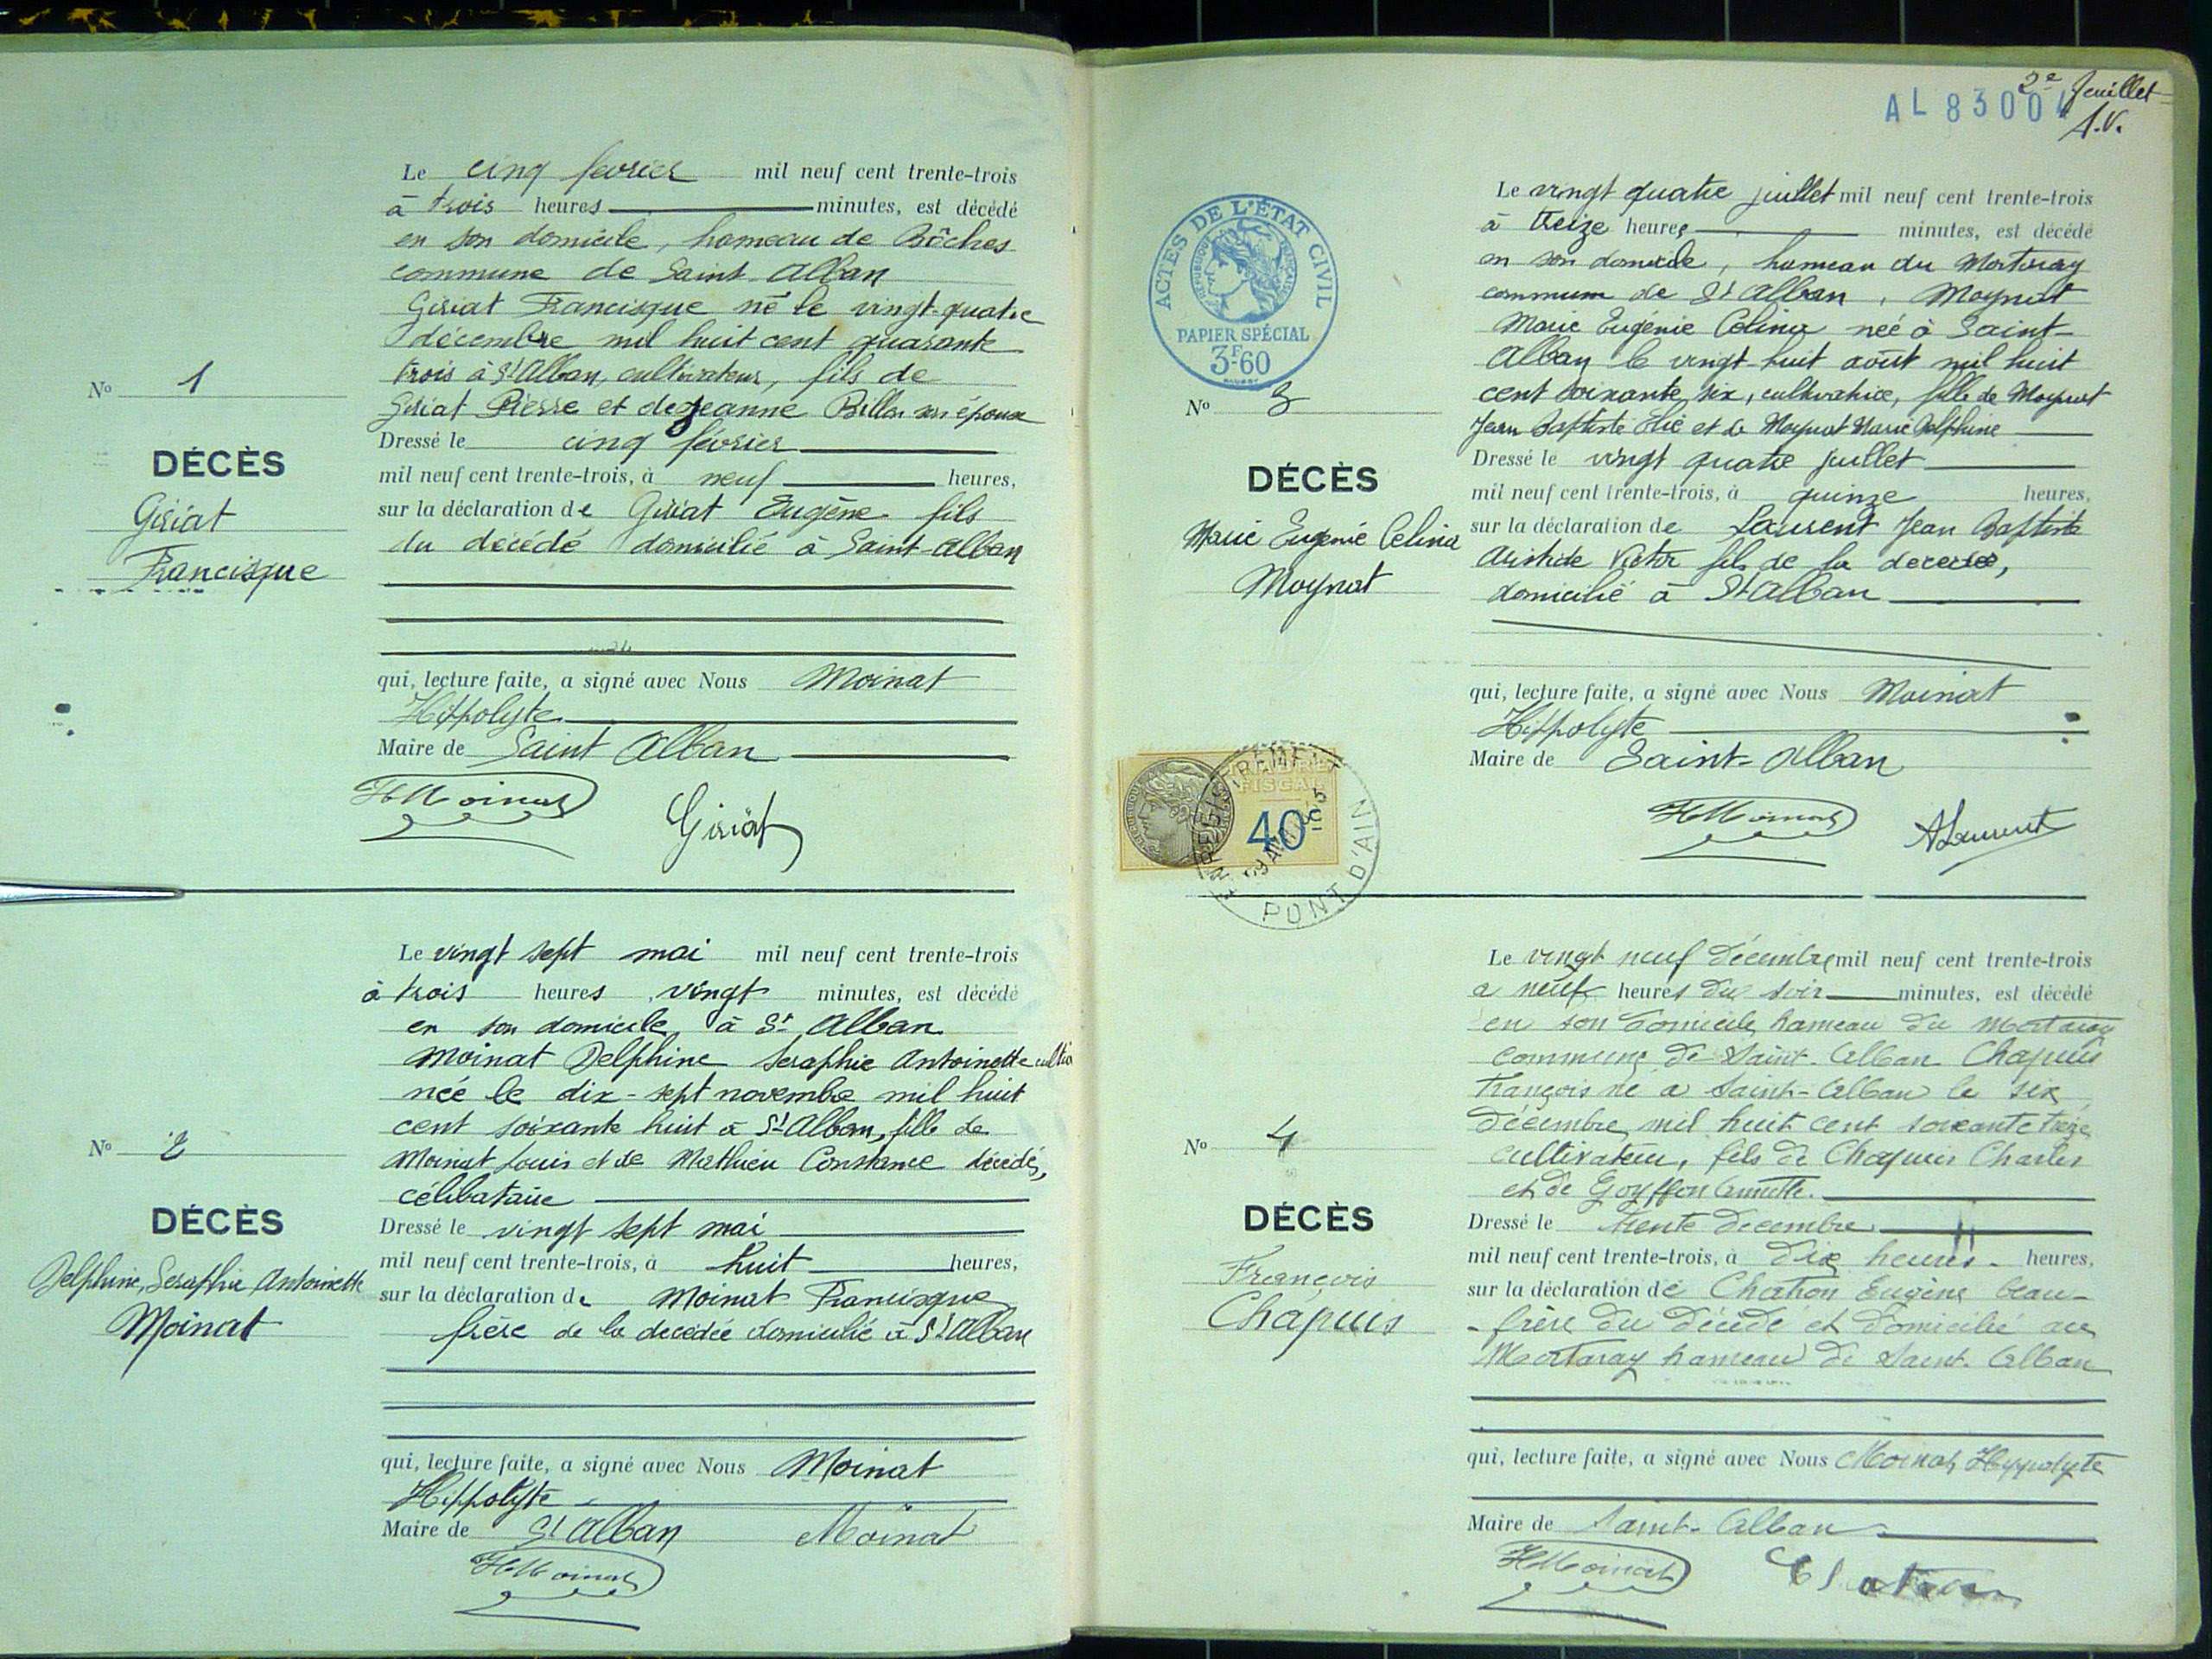 Le cinq fevrier mil neuf cent trente-trois
à trois heures minutes, est décédé
en son domicile, hameau de Bôches
commune de Saint Alban
Giriat Francisque né le vingt-quatre
décembre mil huit cent quarante
trois à St Alban, cultivateur, fils de
Giriat Pierre et de Jeanne Billon son épouse
No 1
DÉCÈS
Giriat
Francisque
Dressé le cinq février
mil neuf cent trente-trois, à neuf heures,
sur la déclaration de Giriat Eugène fils
du décédé domicilié à Saint-Alban
qui, lecture faite, a signé avec Nous Moinat
Hippolyte
Maire de Saint Alban
HMoinat
Giriat
Le vingt sept mai mil neuf cent trente-trois
à trois heures vingt minutes, est décédé
en son domicile, à St Alban
Moinat Delphine Seraphie Antoinette
née le dix-sept novembre mil huit
cent soixante huit à St Alban, fille de
Moinat Louis et de Mathieu Constance décédés,
célibataire
No 2
DÉCÈS
Delphine, Seraphie Antoinette
Moinat
Dressé le vingt sept mai
mil neuf cent trente-trois, à huit heures,
sur la déclaration de Moinat Francisque
frère de la decédée domicilié à St Alban
qui, lecture faite, a signé avec Nous Moinat
Hippolyte
Maire de St Alban
Moinat
HMoinat
2e feuillet
AL 8300
A.V.
ACTES DE L'ÉTAT CIVIL
RÉPUBLIQUE FRANÇAISE
PAPIER SPÉCIAL
3F60
Le vingt quatre juillet mil neuf cent trente-trois
à treize heures minutes, est décédé
en son domicile, hameau du Mortaray
commune de St Alban, Moynat
Marie Eugénie Celina née à Saint
Alban le vingt huit août mil huit
cent soixante six, cultivatrice, fille de Moynat
Jean Baptiste Elie et de Moynat Marie Delphine
No 3
DÉCÈS
Marie Eugénie Celina
Moynat
Dressé le vingt quatre juillet
mil neuf cent trente-trois, à quinze heures,
sur la déclaration de Laurent Jean Baptiste
Aristide Victor fils de la decedée,
domicilié à St Alban
qui, lecture faite, a signé avec Nous Moinat
Hippolyte
Maire de Saint-Alban
HMoinat
ALaurent
FISCAL
40
ENREGISTREMENT
PONT D'AIN
Le vingt neuf Décembre mil neuf cent trente-trois
a neuf heures du soir minutes, est décédé
en son Domicile hameau du Mortaray
commune de Saint-Alban Chapuis
François né a Saint-Alban le six
Décembre mil huit cent soixante treize
cultivateur, fils de Chapuis Charles
et de Goyffon Annette.
No 4
DÉCÈS
François
Chapuis
Dressé le trente Decembre
mil neuf cent trente-trois, à dix heures heures,
sur la déclaration de Chation Eugène beau-
-frère du Décédé et Domicilié au
Mortaray hameau de Saint-Alban
qui, lecture faite, a signé avec Nous Moinat Hyppolyte
Maire de Saint-Alban
HMoinat